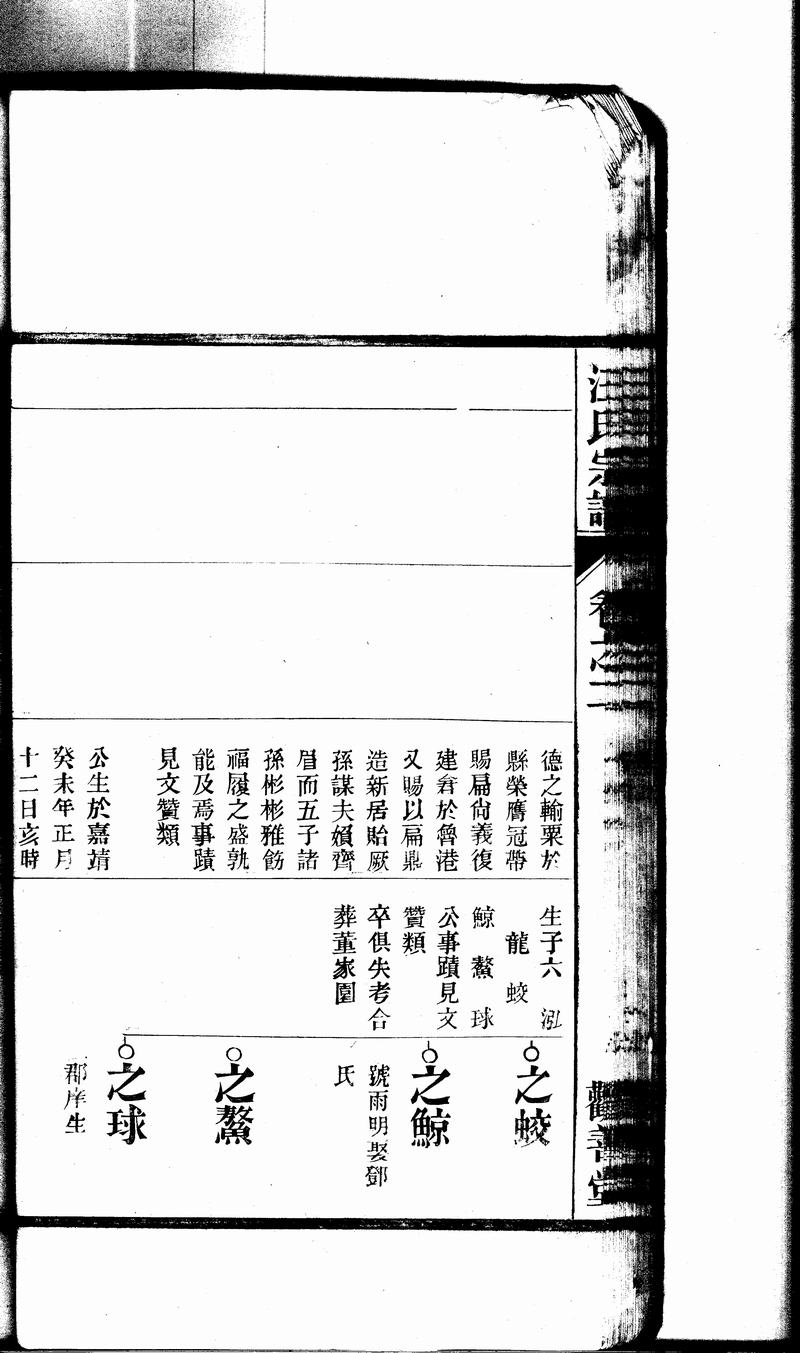 汪氏宗譜
卷之二
觀善堂
德之輸粟於
縣榮膺冠帶
賜扁尙義復
建於魯港
又賜以扁鼎
造新居貽厥
孫謀夫嬪齊
眉而五子諸
孫彬彬雅飭
福履之盛孰
能及焉事蹟
見文贊類
公生於嘉靖
癸未年正月
十二日亥時
生子六 泓
龍 蛟
鯨 鰲 球
公事蹟見文
贊類
卒俱失考合
葬董家園
之蛟
之鯨
號雨明娶鄧
氏
之鰲
之球
郡庠生